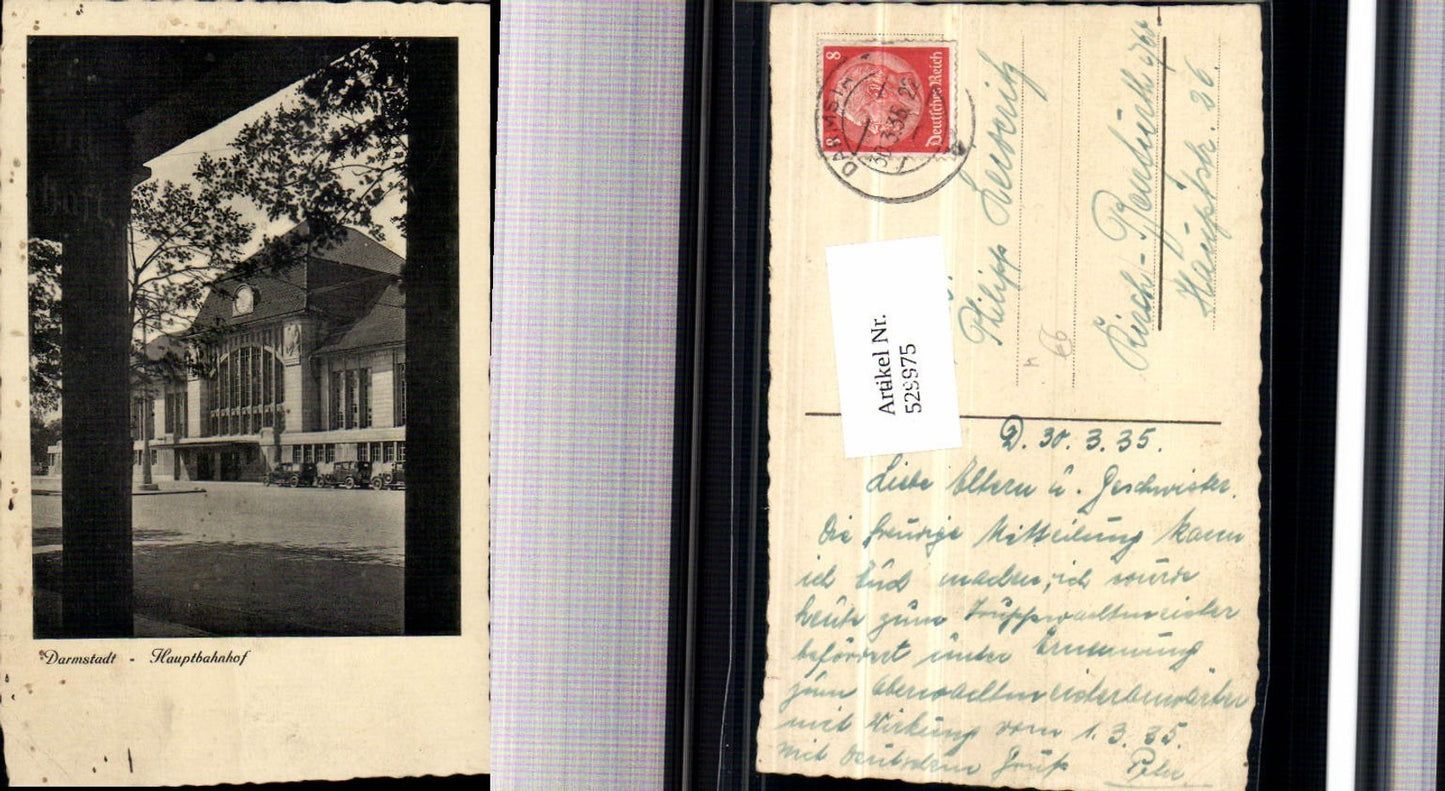 Darmstadt - Hauptbahnhof
8
8
Deutsches Reich
DARMSTADT
30.3.35.
Artikel Nr.
529975
Philipp
Kirch-
Hauptstr. 36.
D. 30.3.35.
Liebe Eltern u. Geschwister.
Die freudige Mitteilung kann
ich Euch machen, ich wurde
heute zum Truppwachtmeister
befördert unter Ernennung
zum Oberwachtmeisteranwärter
mit Wirkung vom 1.3.35.
Mit deutschem Gruß